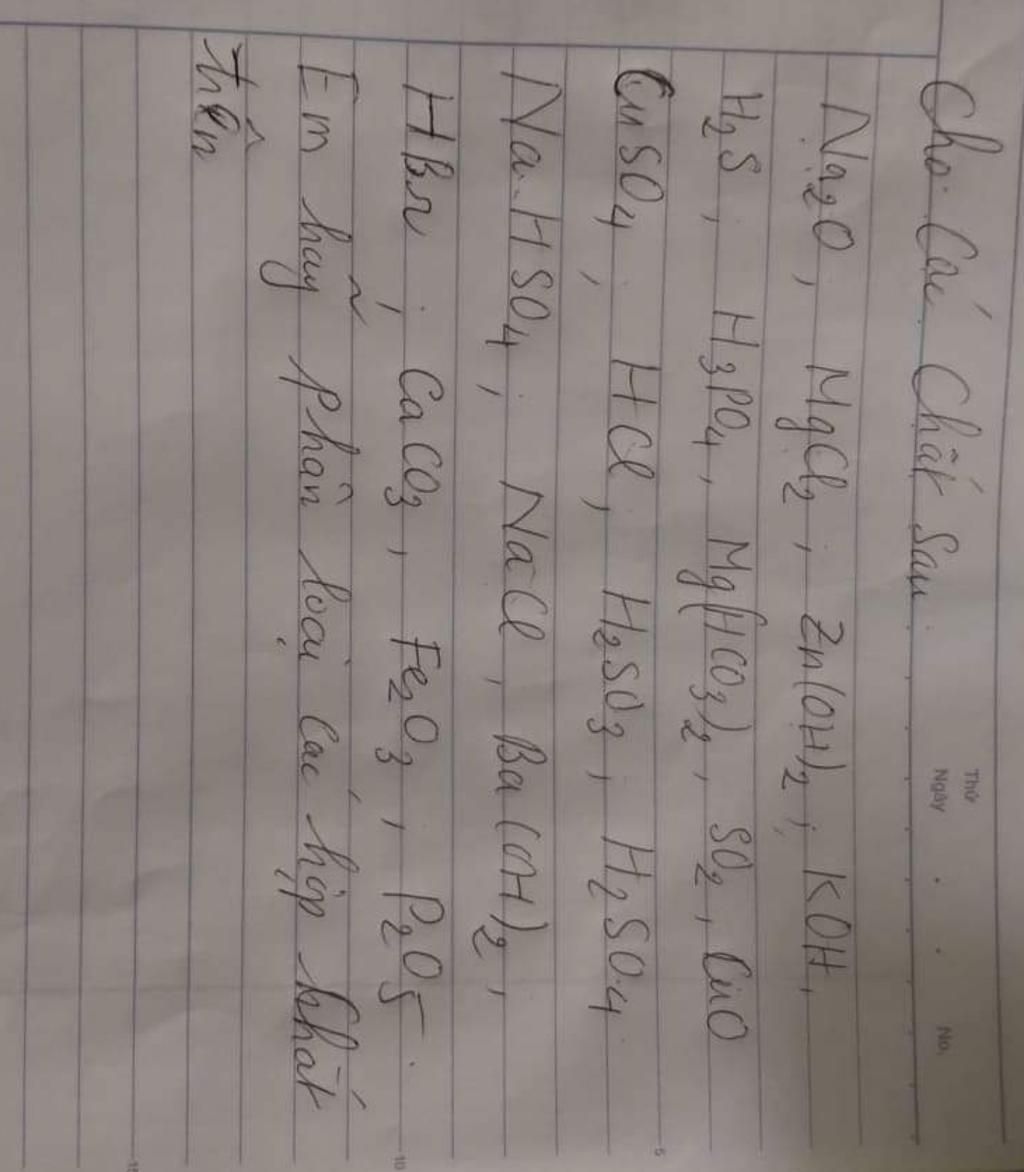 Thứ
Ngày . . No.
Cho Các Chất Sau:
Na₂O, MgCl₂, Zn(OH)₂, KOH,
H₂S, H₃PO₄, Mg(HCO₃)₂, SO₂, CuO
CuSO₄, HCl, H₂SO₃, H₂SO₄
NaHSO₄, NaCl, Ba(OH)₂,
HBr, CaCO₃, Fe₂O₃, P₂O₅.
Em hãy phân loại các hợp chất
trên
5
10
15